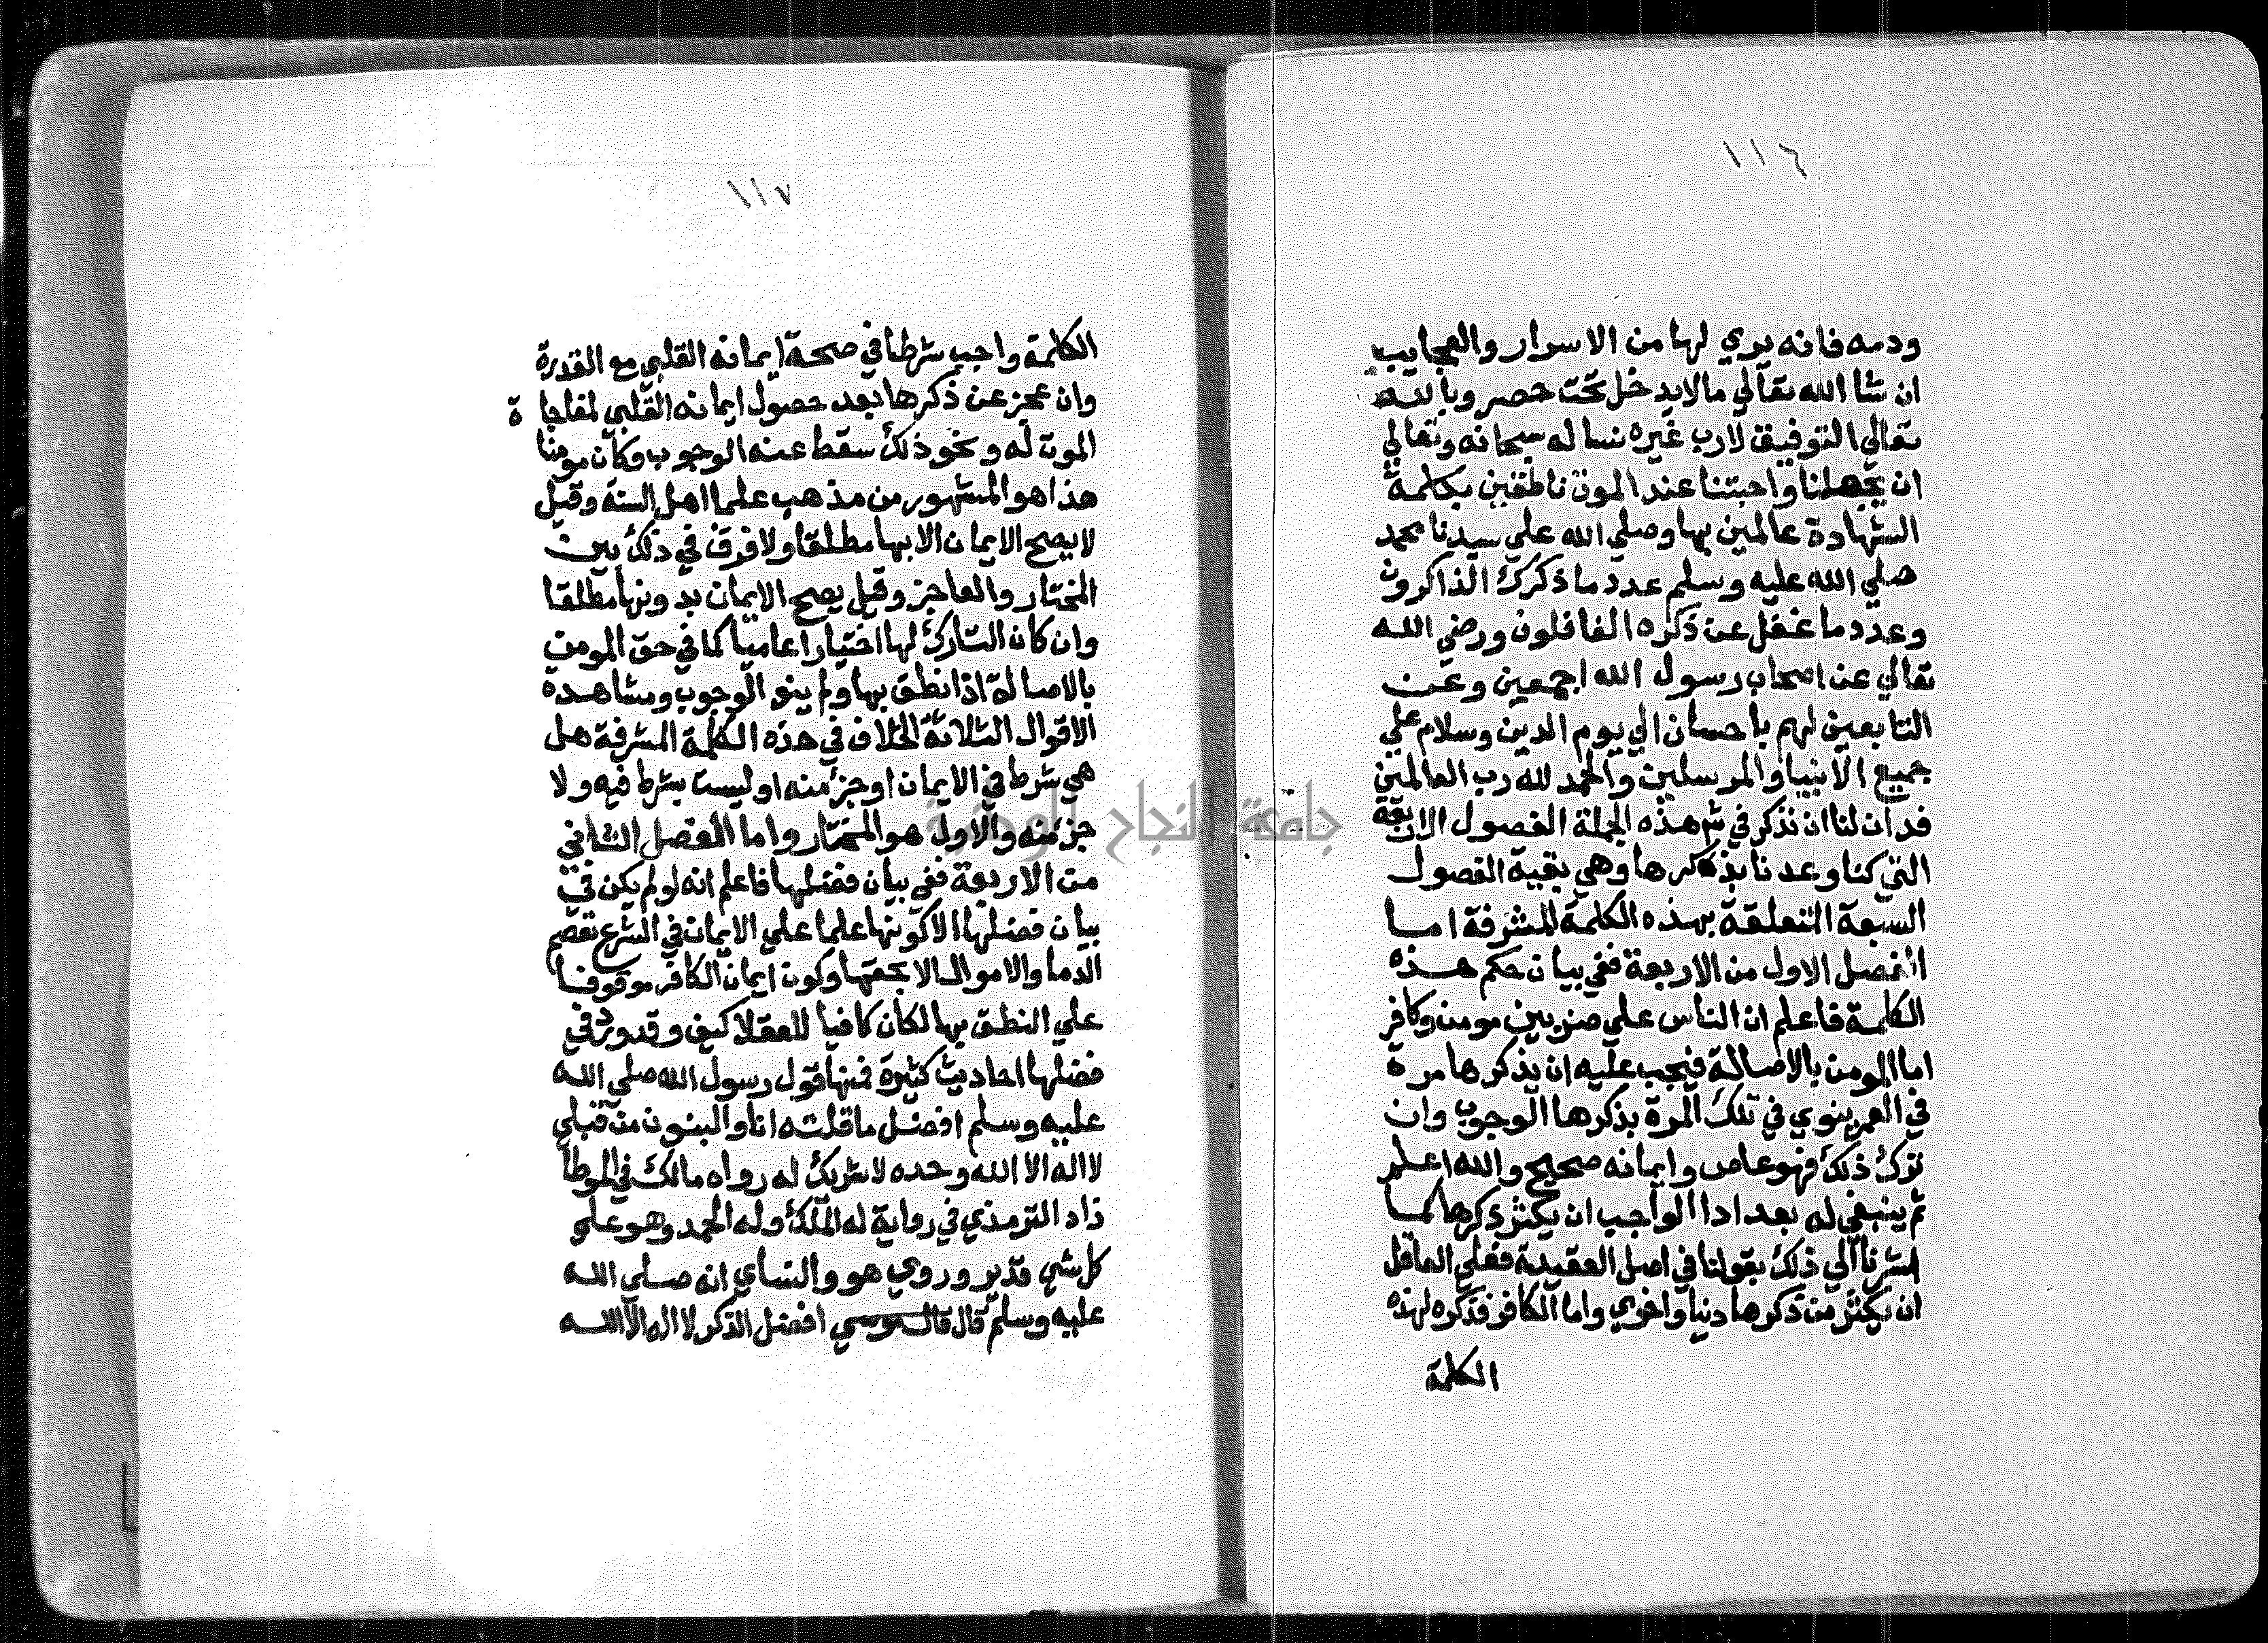 ١١٦
ودمه فانه يري لها من الاسرار والعجايب
ان شا الله تعالي مالا يدخل تحت حصر وبالله
تعالي التوفيق لارب غيره نساله سبحانه وتعالي
ان يجعلنا واحبتنا عند الموت ناطقين بكلمة
الشهادة عالمين بها وصلي الله علي سيدنا محمد
صلي الله عليه وسلم عدد ما ذكرك الذاكرون
وعدد ما غفل عن ذكره الغافلون ورضي الله
تعالي عن اصحاب رسول الله اجمعين وعن
التابعين لهم باحسان الي يوم الدين وسلام علي
جميع الانبيا والمرسلين والحمد لله رب العالمين
قد ان لنا ان نذكر في شرهذه الجملة الفصول الاربعة
التي كنا وعدنا بذكرها وهي بقية الفصول
السبعة المتعلقة بهذه الكلمة المشرفة اما
الفصل الاول من الاربعة ففي بيان حكم هذه
الكلمة فاعلم ان الناس علي ضربين مومن وكافر
اما المومن بالاصالة فيجب عليه ان يذكرها مرة
في العمر ينوي في تلك المرة بذكرها الوجوب وان
ترك ذلك فهو عاص وايمانه صحيح والله اعلم
ثم ينبغي له بعد ادا الواجب ان يكثر ذكرها كما
اشرنا الي ذلك بقولنا في اصل العقيدة فعلي العاقل
ان يكثر من ذكرها دنيا واخري واما الكافر فذكره لهذه
الكلمة
١١٧
الكلمة واجب شرطا في صحة ايمانه القلبي مع القدرة
وان عجز عن ذكرها بعد حصول ايمانه القلبي لمفاجاة
الموت له ونحو ذلك سقط عنه الوجوب وكان مومنا
هذا هو المشهور من مذهب علما اهل السنة وقيل
لا يصح الايمان الا بها مطلقا ولا فرق في ذلك بين
المختار والعاجز وقيل يصح الايمان بدونها مطلقا
وان كان التارك لها اختيارا عاصيا كما في حق المومن
بالاصالة اذا نطق بها ولم ينو الوجوب ومشاهدة
الاقوال الثلاثة الخلاف في هذه الكلمة المشرفة هل
هي شرط في الايمان او جزء منه او ليست بشرط فيه ولا
جزء منه والاول هو المختار واما الفصل الثاني
من الاربعة ففي بيان فضلها فاعلم انه لو لم يكن في
بيان فضلها الا كونها علما علي الايمان في الشرع تعصم
الدما والاموال الا بحقها وكون ايمان الكافر موقوفا
علي النطق بها لكان كافيا للعقلا كيف وقد ورد في
فضلها احاديث كثيرة فمنها قول رسول الله صلي الله
عليه وسلم افضل ما قلته انا والنبيون من قبلي
لا اله الا الله وحده لا شريك له رواه مالك في الموطا
زاد الترمذي في رواية له الملك وله الحمد وهو علي
كل شي قدير وروي هو والنساي ان صلي الله
عليه وسلم قال قال موسي افضل الذكر لا اله الا الله
جامعة النجاح الوطنية